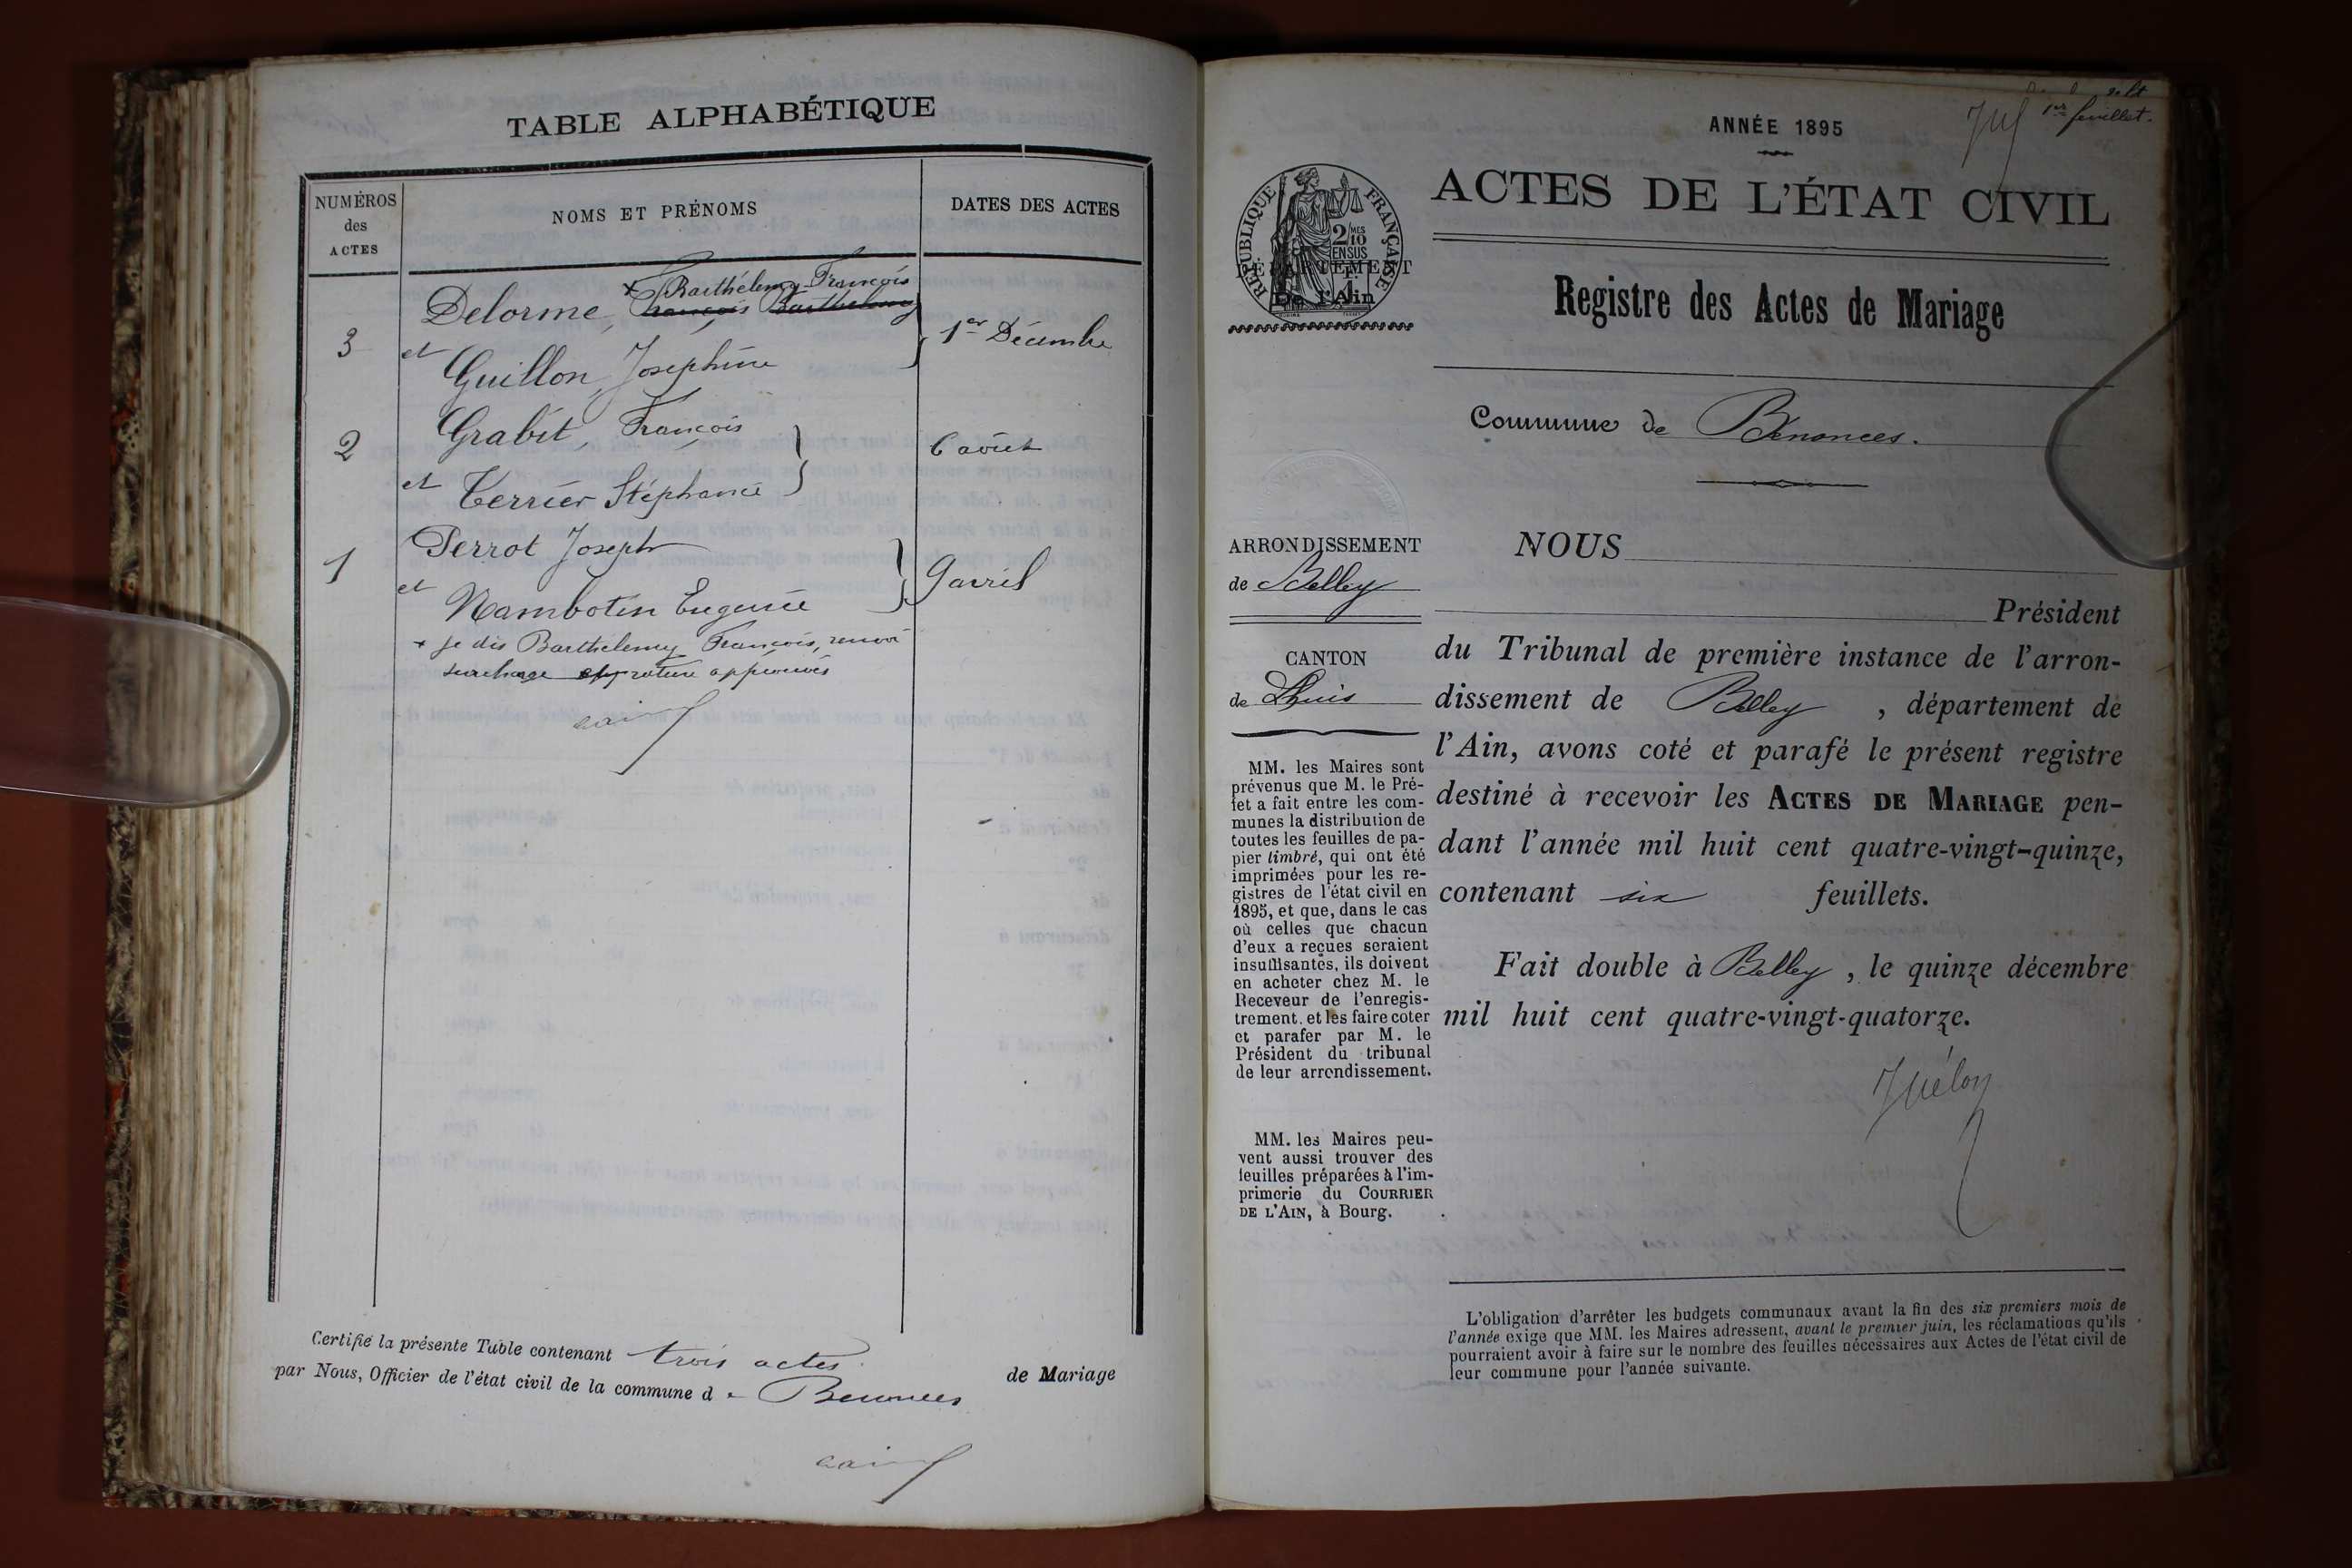 TABLE ALPHABÉTIQUE
NUMÉROS
des
ACTES
NOMS ET PRÉNOMS
DATES DES ACTES
+ Barthélemy François
Delorme, François Barthelemy
3
et
1er Décembre
Guillon, Josephine
Grabit, François
2
6 août
et Terrier Stéphanie
Perrot Joseph
1
et
9 avril
Nambotin Eugenie
+ je dis Barthelemy François, renvoi
surcharge et rature approuvés
Certifié la présente Table contenant trois actes de Mariage
par Nous, Officier de l'état civil de la commune de Benonces
1er feuillet.
ANNÉE 1895
ACTES DE L'ÉTAT CIVIL
RÉPUBLIQUE FRANÇAISE
2/10 MES
EN SUS
DÉPARTEMENT
De l'Ain
Registre des Actes de Mariage
Commune de Bénonces.
ARRONDISSEMENT
de Belley
CANTON
de Lhuis
MM. les Maires sont
prévenus que M. le Pré-
fet a fait entre les com-
munes la distribution de
toutes les feuilles de pa-
pier timbré, qui ont été
imprimées pour les re-
gistres de l'état civil en
1895, et que, dans le cas
où celles que chacun
d'eux a reçues seraient
insuffisantes, ils doivent
en acheter chez M. le
Receveur de l'enregis-
trement. et les faire coter
et parafer par M. le
Président du tribunal
de leur arrondissement.
MM. les Maires peu-
vent aussi trouver des
feuilles préparées à l'im-
primerie du COURRIER
DE L'AIN, à Bourg.
NOUS
Président
du Tribunal de première instance de l'arron-
dissement de Belley , département de
l'Ain, avons coté et parafé le présent registre
destiné à recevoir les ACTES DE MARIAGE pen-
dant l'année mil huit cent quatre-vingt-quinze,
contenant six feuillets.
Fait double à Belley , le quinze décembre
mil huit cent quatre-vingt-quatorze.
L'obligation d'arrêter les budgets communaux avant la fin des six premiers mois de
l'année exige que MM. les Maires adressent, avant le premier juin, les réclamations qu'ils
pourraient avoir à faire sur le nombre des feuilles nécessaires aux Actes de l'état civil de
leur commune pour l'année suivante.